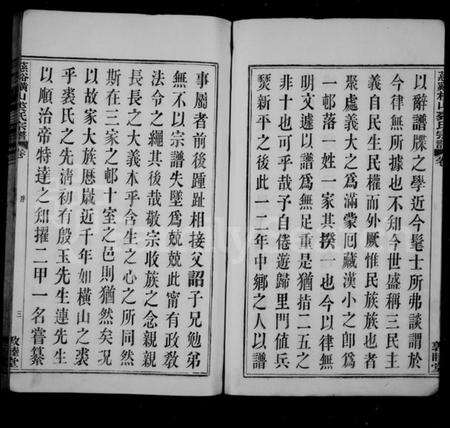 慈谿橫山裘氏宗譜 卷
以辭譜牒之學近今髦士所弗談謂於
今律無所據也不知今世盛稱三民主
義自民生民權而外厥惟民族民族也者
聚處義大之為滿蒙回藏漢小之即為
一邨落一姓一家其揆一也今以律無
明文遽以譜為無足重是猶揩二五之
非十也可乎哉予自倦遊歸里門值兵
燹新平之後此一二年中鄉之人以譜
事屬者前後踵趾相接父詔子兄勉弟
無不以宗譜失墜爲兢兢此甯有政敎
法令之繩其後哉敬宗收族之念親親
長長之大義本乎含生之心之所同然
斯在三家之邨十室之邑則猶然矣况
以故家大族歷嵗近千年如橫山之裘
乎裘氏之先清初有殷玉先生連先生
以順治帝特達之知擢二甲一名嘗纂
慈谿橫山裘氏宗譜 卷
序
三
敦睦堂